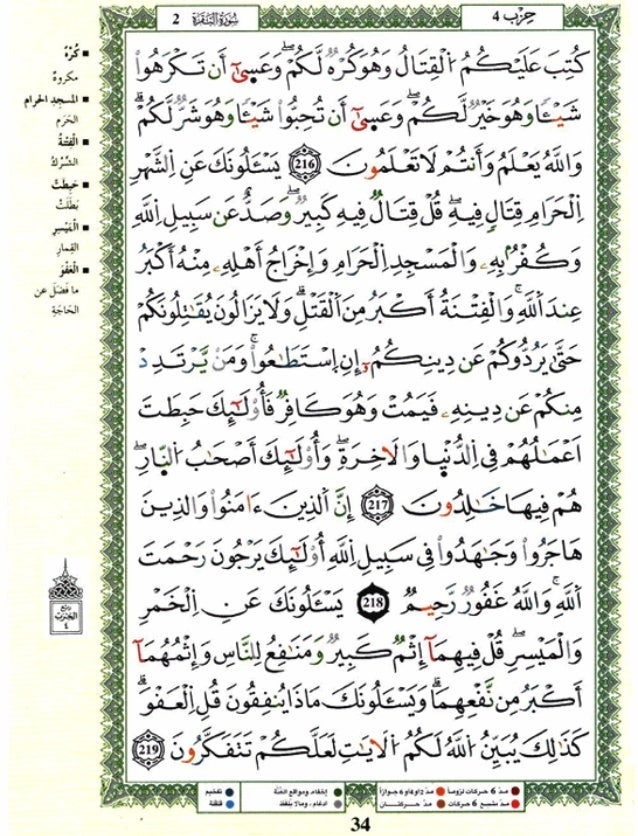 سُورَةُ الْبَقَرَةِ 2
حِزْب 4
كُتِبَ عَلَيْكُمُ اُلْقِتَالُ وَهُوَ كُرْهٌ لَّكُمْ ۖ وَعَسَىٰٓ أَن تَكْرَهُواْ
شَيْـٔاً وَهُوَ خَيْرٌ لَّكُمْ ۖ وَعَسَىٰٓ أَن تُحِبُّواْ شَيْـٔاً وَهُوَ شَرٌّ لَّكُمْ ۗ
وَاللَّهُ يَعْلَمُ وَأَنتُمْ لَا تَعْلَمُونَ 216 يَسْـَٔلُونَكَ عَنِ اِلشَّهْرِ
اِلْحَرَامِ قِتَالٍ فِيهِ ۖ قُلْ قِتَالٌ فِيهِ كَبِيرٌ ۖ وَصَدٌّ عَن سَبِيلِ اِللَّهِ
وَكُفْرٌ بِهِۦ وَالْمَسْجِدِ اِلْحَرَامِ وَإِخْرَاجُ أَهْلِهِۦ مِنْهُ أَكْبَرُ
عِندَ اَللَّهِ ۚ وَالْفِتْنَةُ أَكْبَرُ مِنَ اَلْقَتْلِ ۗ وَلَا يَزَالُونَ يُقَٰتِلُونَكُمْ
حَتَّىٰ يَرُدُّوكُمْ عَن دِينِكُمُۥٓ إِنِ اِسْتَطَٰعُواْ ۚ وَمَنْ يَّرْتَدِدْ
مِنكُمْ عَن دِينِهِۦ فَيَمُتْ وَهُوَ كَافِرٌ فَأُوْلَٰٓئِكَ حَبِطَتَ
اَعْمَٰلُهُمْ فِي اِلدُّنْيَا وَالَاخِرَةِ ۖ وَأُوْلَٰٓئِكَ أَصْحَٰبُ اُلنَّارِ ۖ
هُمْ فِيهَا خَٰلِدُونَ 217 إِنَّ اَلذِينَ ءَامَنُواْ وَالذِينَ
هَاجَرُواْ وَجَٰهَدُواْ فِي سَبِيلِ اِللَّهِ أُوْلَٰٓئِكَ يَرْجُونَ رَحْمَتَ
اَللَّهِ ۚ وَاللَّهُ غَفُورٌ رَّحِيمٌ 218 يَسْـَٔلُونَكَ عَنِ اِلْخَمْرِ
وَالْمَيْسِرِ ۖ قُلْ فِيهِمَآ إِثْمٌ كَبِيرٌ وَمَنَٰفِعُ لِلنَّاسِ وَإِثْمُهُمَآ
أَكْبَرُ مِن نَّفْعِهِمَا ۗ وَيَسْـَٔلُونَكَ مَاذَا يُنفِقُونَ قُلِ اِلْعَفْوَ ۗ
كَذَٰلِكَ يُبَيِّنُ اُللَّهُ لَكُمُ اُلَايَٰتِ لَعَلَّكُمْ تَتَفَكَّرُونَ 219
■ كُرْهٌ
مكروهٌ
■ المسجد الحرام
الحَرَم
■ الْفِتْنَةُ
الشِّرْكُ
■ حَبِطَتْ
بَطَلَتْ
■ الْمَيْسِرِ
القِمار
■ الْعَفْوَ
ما فَضَلَ عن
الحَاجَةِ
ربع
الحزب
٤
مدّ 6 حركات لزوماً
مدّ 2 أو 4 أو 6 جوازاً
إخفاء، ومواقع الغُنَّة
تفخيم
مدّ مشبع 6 حركات
مدّ حركتان
إدغام، وما لا يُلفَظ
قلقلة
34